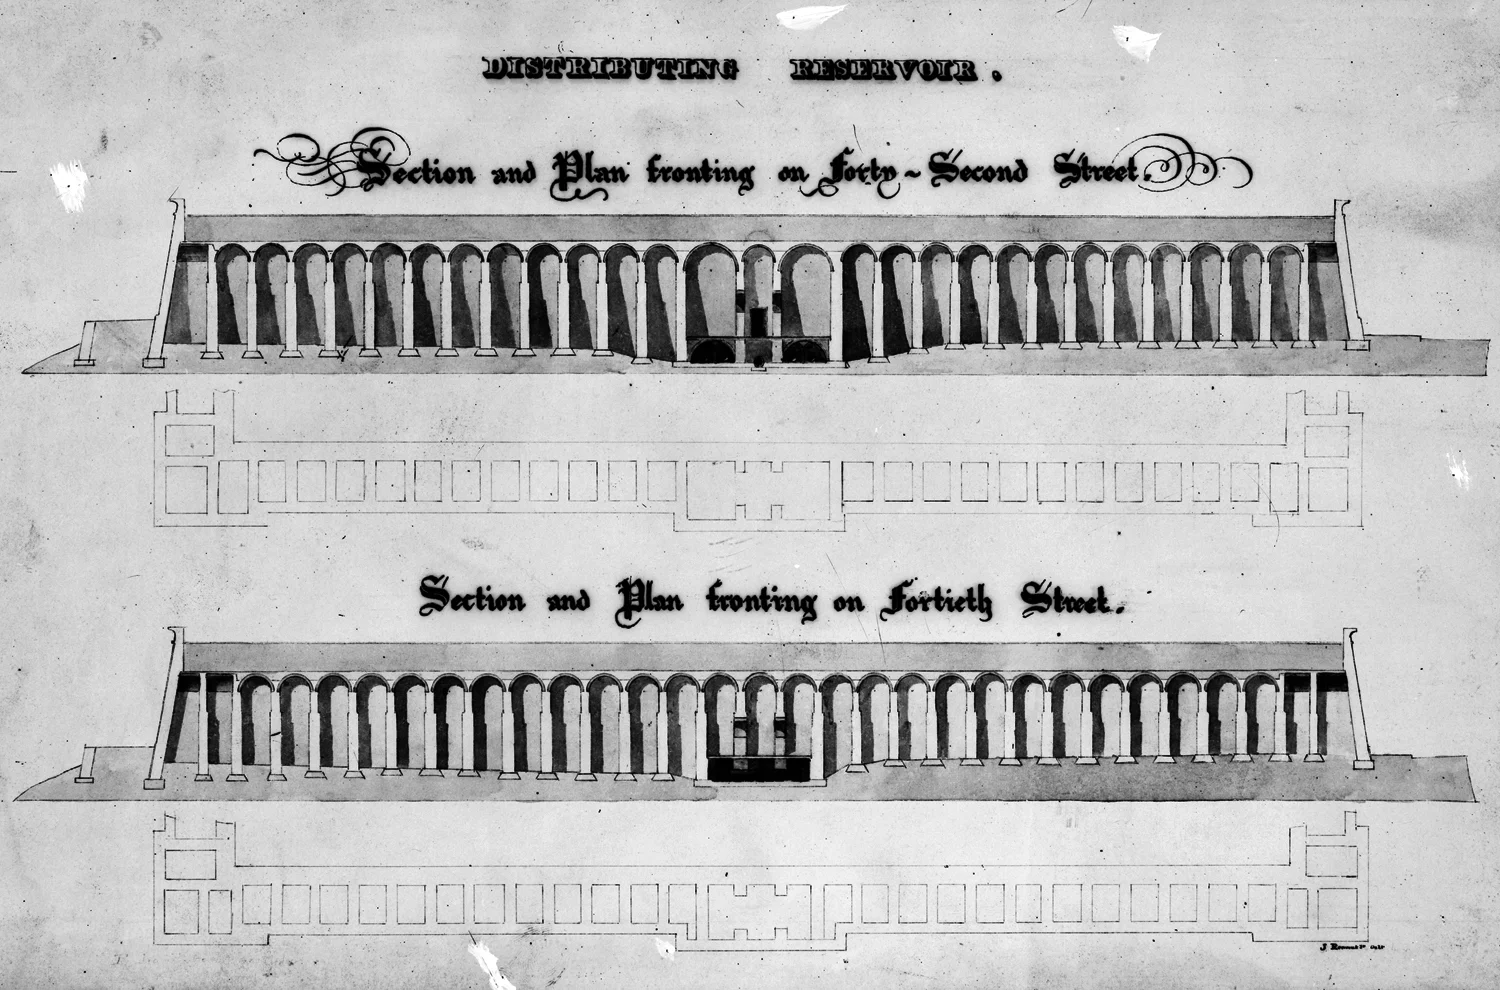 DISTRIBUTING RESERVOIR.
Section and Plan fronting on Forty~Second Street.
Section and Plan fronting on Fortieth Street.